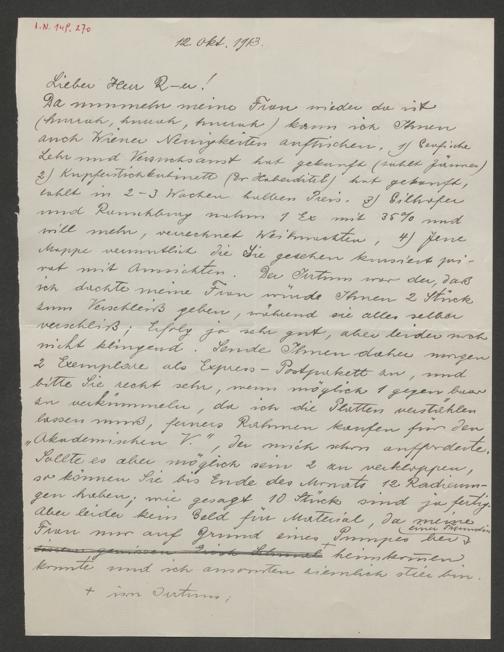 I.N. 149.270
12 Okt. 1913.
Lieber Herr R-er!
Da nunmehr meine Frau wieder da ist
(hurrah, hurrah, hurrah) kann ich Ihnen
auch Wiener Neuigkeiten auftischen, 1) Grafische
Lehr und Versuchsanst hat gekauft (zahlt Jänner)
2) Kupferstichkabinett (Dr Haberditzl) hat gekauft,
zahlt in 2-3 Wochen halben Preis. 3) Gilhofer
und Ranschburg nahm 1 Ex mit 35% und
will mehr, verrechnet Weihnachten, 4) Jene
Mappe vermutlich die Sie gesehen kursiert pri-
vat mit Ansichten. Der Irrtum war der, daß
ich dachte meine Frau würde Ihnen 2 Stück
zum Verschleiß geben, während sie alles selber
verschliß; Erfolg ja sehr gut, aber leider noch
nicht klingend. Sende Ihnen daher morgen
2 Exemplare als Express-Postpakett an, und
bitte Sie recht sehr, wenn möglich 1 gegen baar
zu verkümmeln, da ich die Platten verstählen
lassen muß, ferners Rahmen kaufen für den
„Akademischen V“, der mich schon aufforderte.
Sollte es aber möglich sein 2 zu verkloppen,
so können Sie bis Ende des Monats 12 Radierun-
gen haben; wie gesagt 10 Stück sind ja fertig.
Aber leider kein Geld für Material, da meine
Frau nur auf Grund eines Pumpes bei +
einer
heimkommen
konnte und ich ansonsten ziemlich stier bin.
+ im Irrtum;